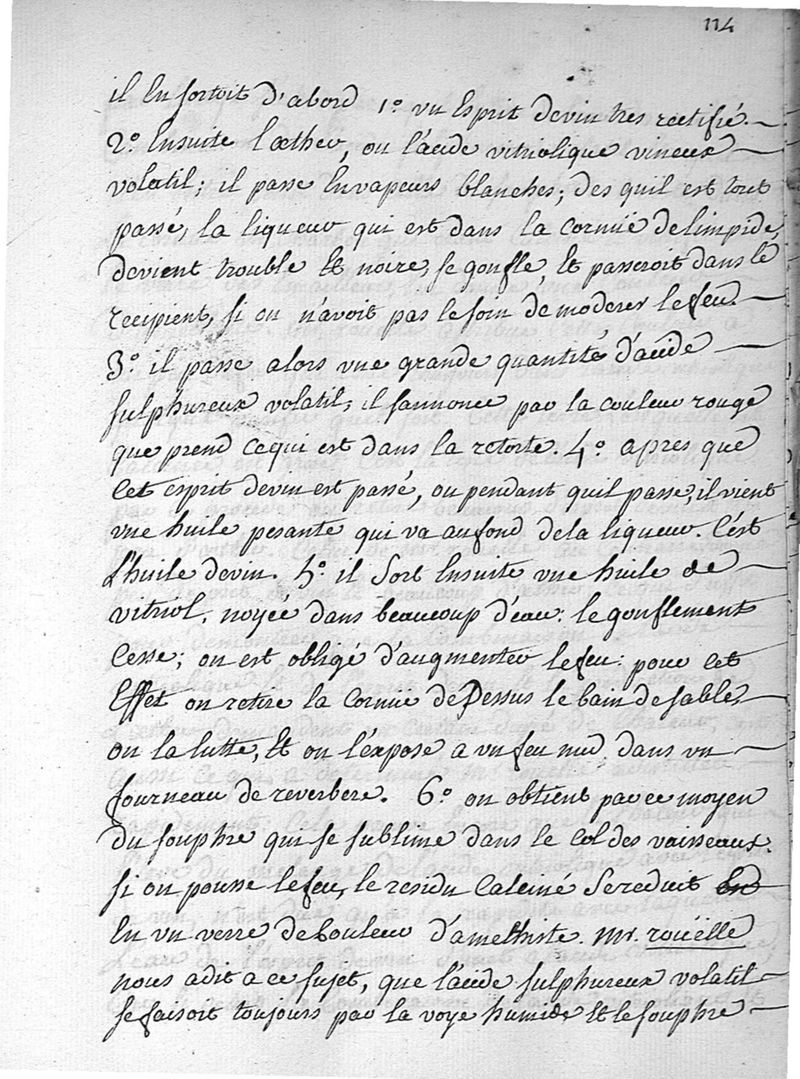 114
il En sortoit d'abord 1.° vn Esprit devin tres rectifié.
2.° Ensuite l'æther, ou l'acide vitriolique vineux
volatil; il passe En vapeurs blanches; des quil est tout
passé, la liqueur qui est dans la cornüe de limpide,
devient trouble Et noire, se gonfle, Et passeroit dans le
recipient, si on n'avoit pas le soin de moderer le feu.
3.° il passe alors vne grande quantité d'acide
sulphureux volatil; il sannonce par la couleur rouge
que prend cequi est dans la retorte. 4.° apres que
Cet esprit devin est passé, ou pendant quil passe, il vient
vne huile pesante qui va au fond dela liqueur. C'est
L'huile devin. 5.° il sort Ensuite vne huile de
vitriol, noyée dans beaucoup d'eau: le gonflement
Cesse; on est obligé d'augmenter le feu: pour cet
Effet on retire la Cornüe de Dessus le bain de sable,
on la lutte, Et on l'expose a vn feu nud dans vn
fourneau de reverbere. 6.° on obtient par ce moyen
Du souphre qui se sublime dans le Col des vaisseaux.
si on pousse le feu, le residu Calciné se reduit
En vn verre de Couleur d'amethiste. Mr. roüelle
nous adit a ce sujet, que l'acide sulphureux volatil
se faisoit toujours par la voye humide Et le souphre